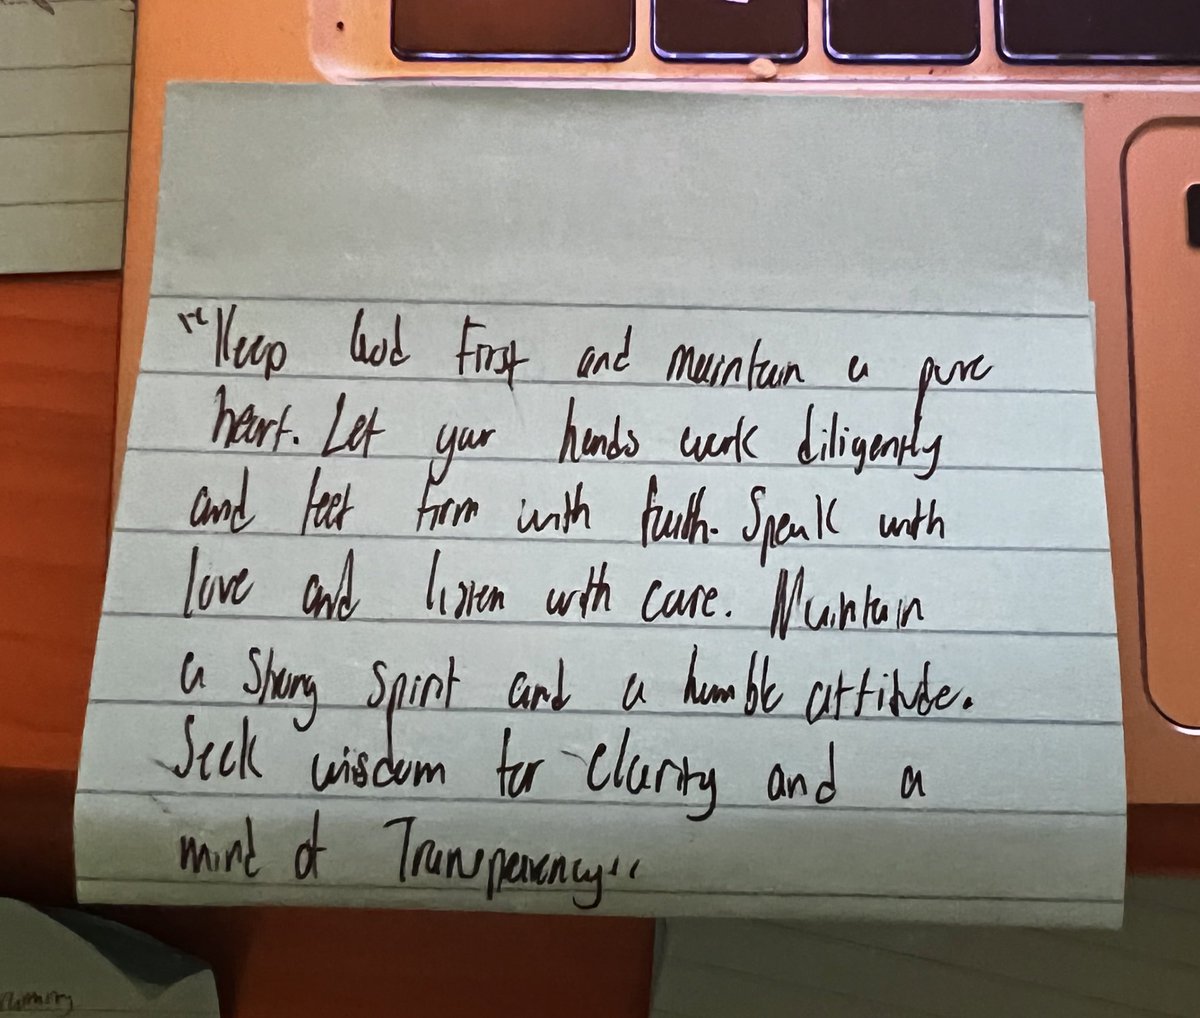 "Keep God First and maintain a pure
heart. Let your hands work diligently
and feet firm with faith. Speak with
love and listen with care. Maintain
a strong spirit and a humble attitude.
Seek wisdom for clarity and a
mind of Transparency"